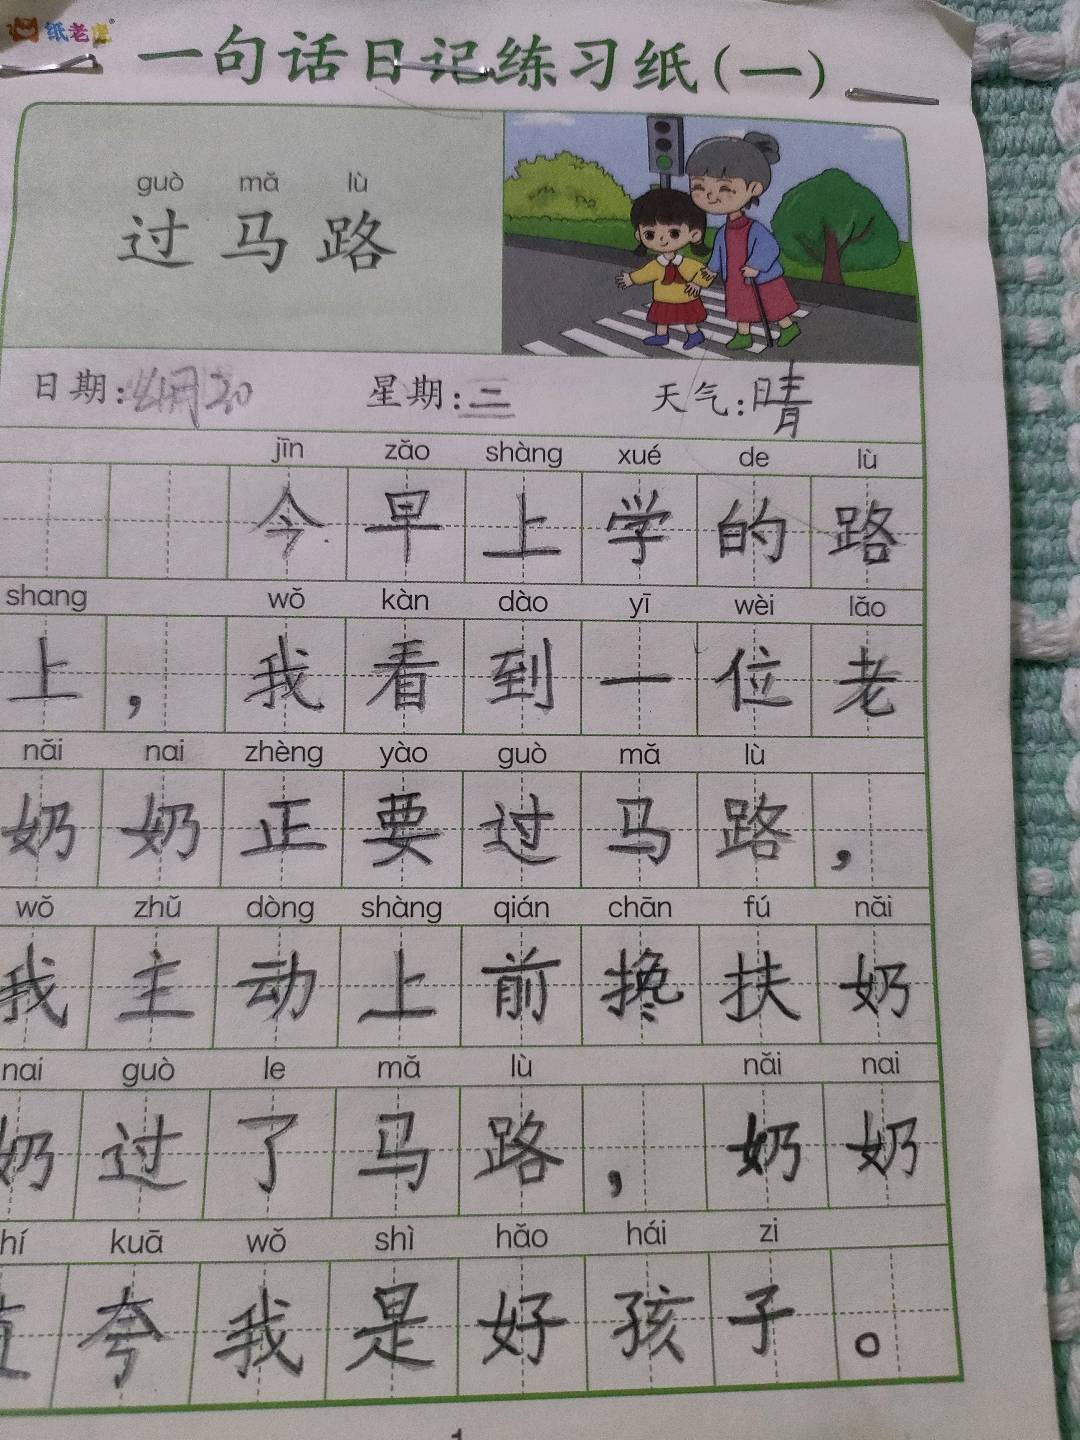 纸老虎
一句话日记练习纸(一)
guò mǎ lù
过马路
日期: 月20 星期:三 天气:晴
jīn zǎo shàng xué de lù
今早上学的路
shang wǒ kàn dào yī wèi lǎo
上，我看到一位老
nǎi nai zhèng yào guò mǎ lù
奶奶正要过马路，
wǒ zhǔ dòng shàng qián chān fú nǎi
我主动上前搀扶奶
nai guò le mǎ lù nǎi nai
奶过了马路，奶奶
hí kuā wǒ shì hǎo hái zi
直夸我是好孩子。
1